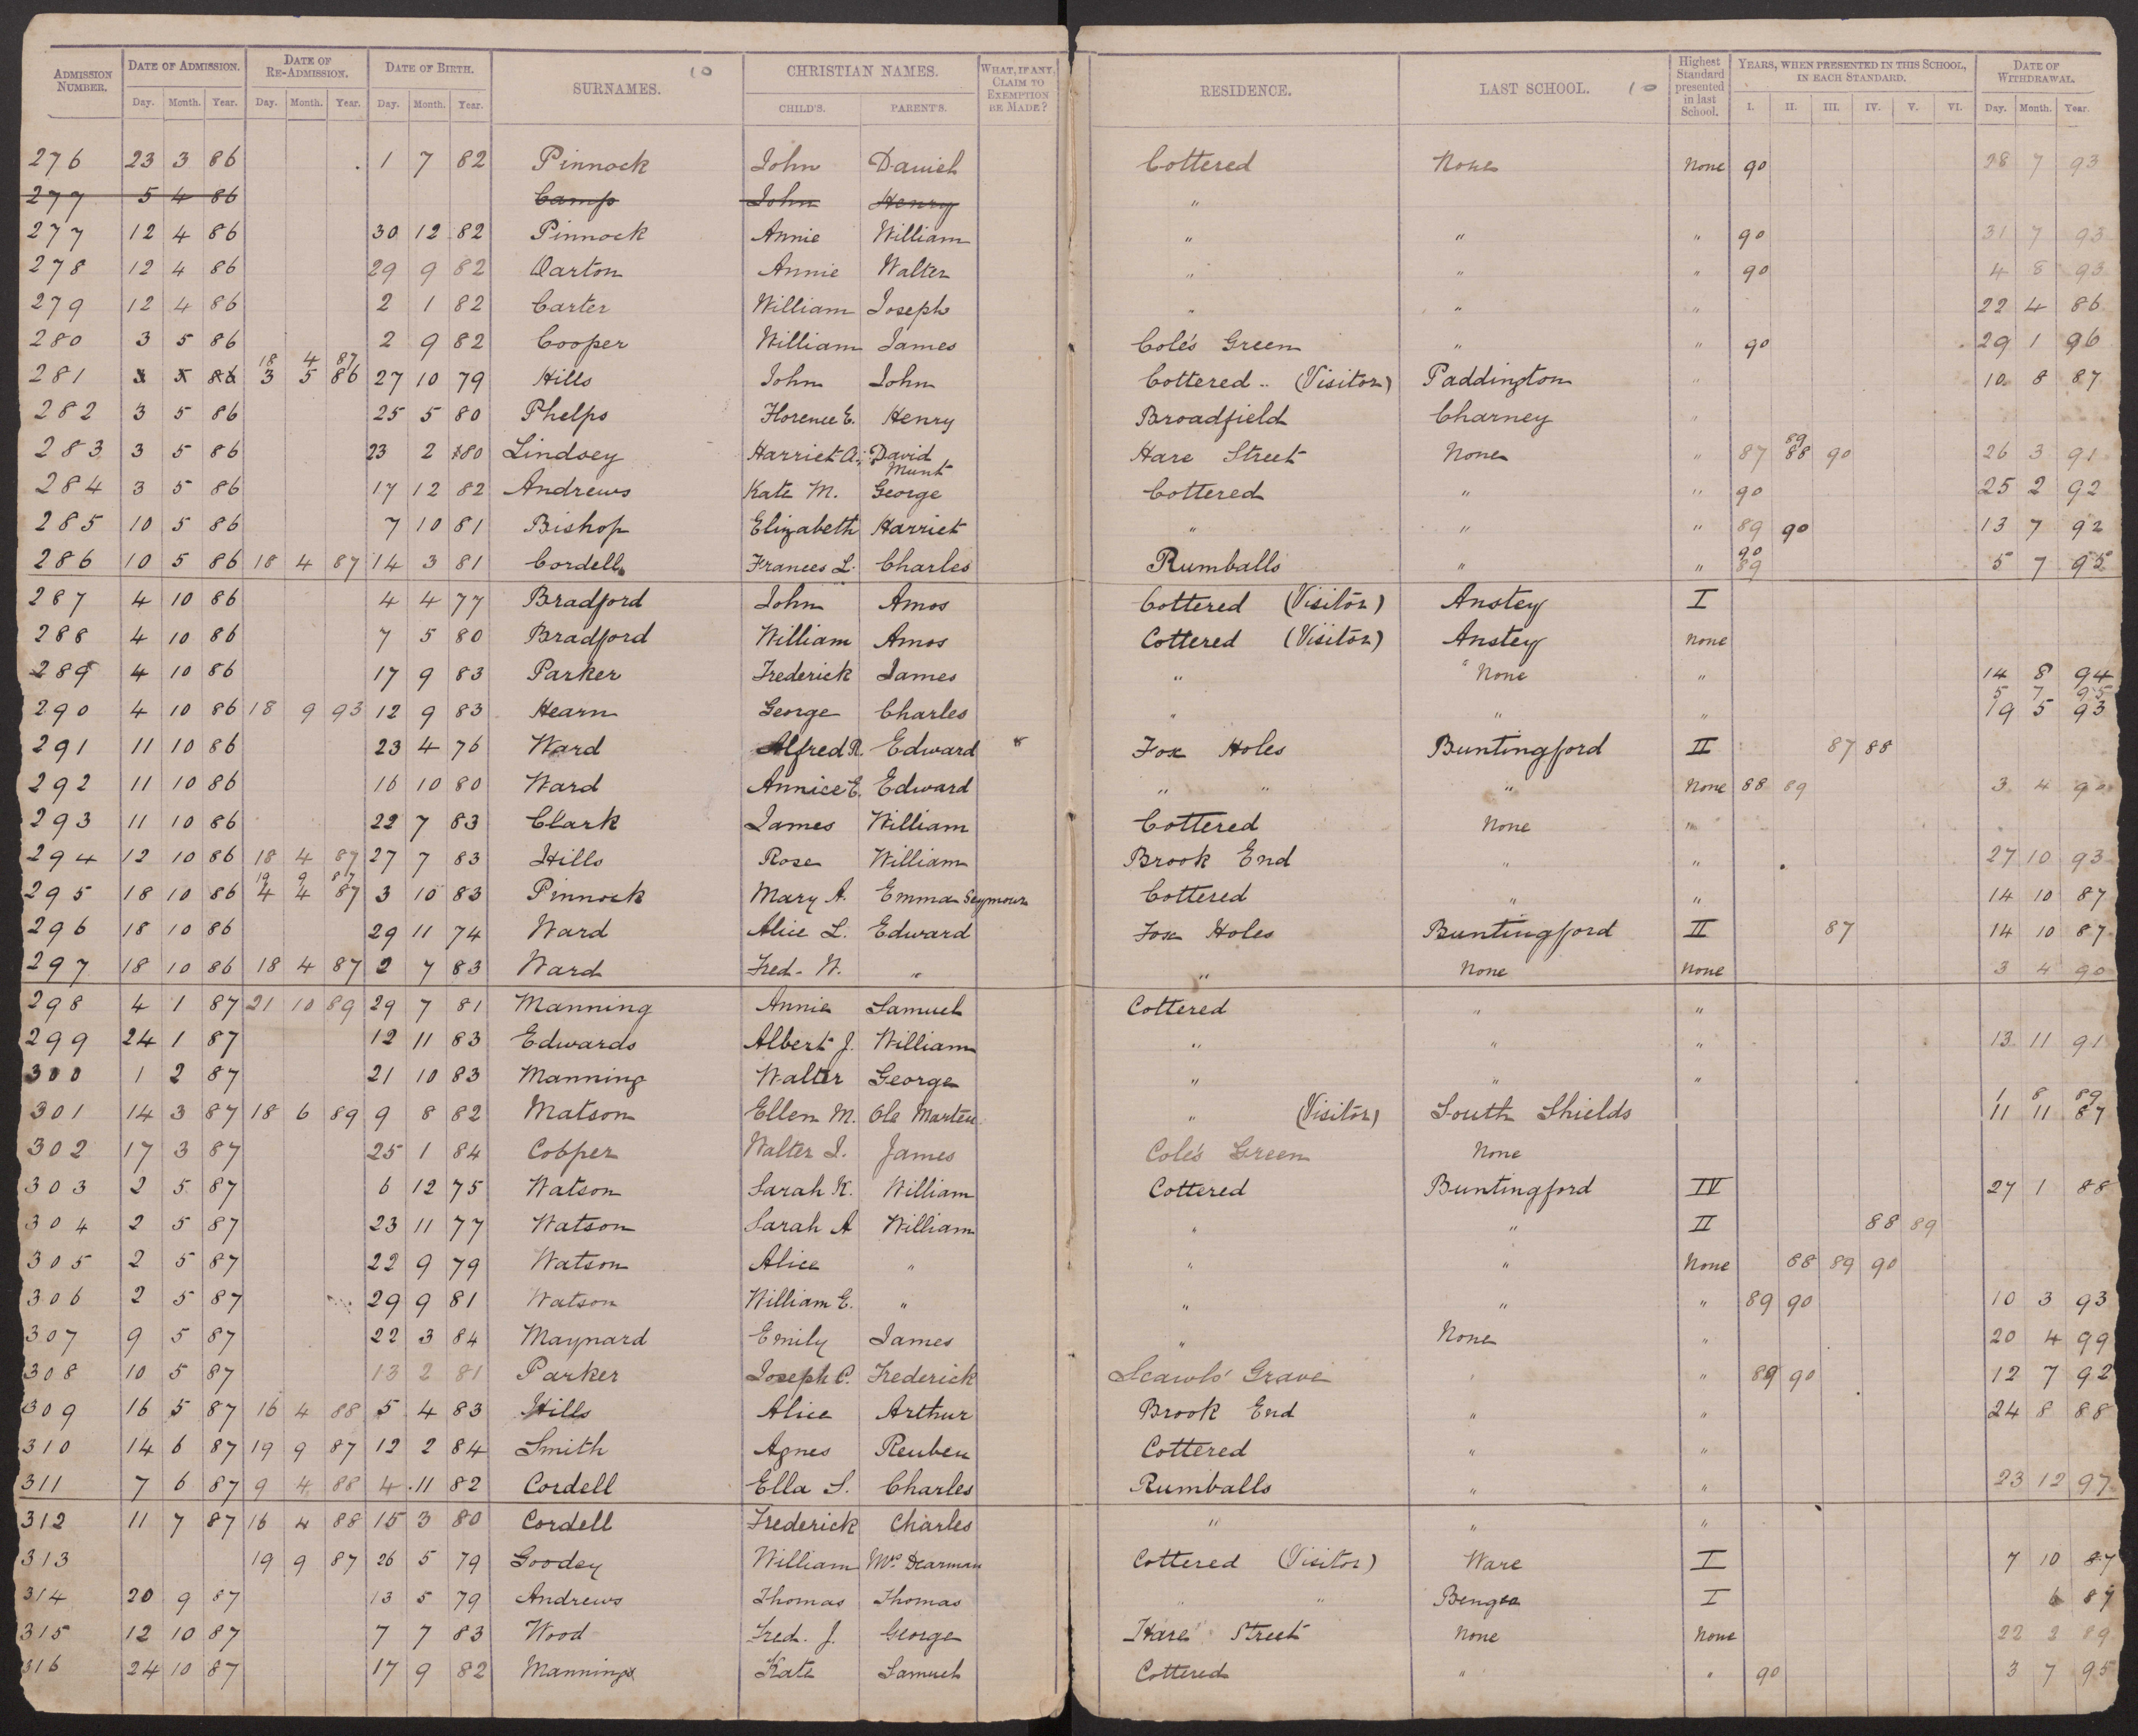 ADMISSION NUMBER. DATE OF ADMISSION. DATE OF RE-ADMISSION. DATE OF BIRTH. SURNAMES. 10 CHRISTIAN NAMES. WHAT, IF ANY, CLAIM TO EXEMPTION BE MADE? RESIDENCE. LAST SCHOOL. 10 Highest Standard presented in last School. YEARS, WHEN PRESENTED IN THIS SCHOOL, IN EACH STANDARD. DATE OF WITHDRAWAL.
Day. Month. Year. Day. Month. Year. Day. Month. Year. CHILD'S. PARENT'S. I. II. III. IV. V. VI. Day. Month. Year.
276 23 3 86 1 7 82 Pinnock John Daniel Cottered None None 90 28 7 93
277 5 4 86 Camp John Henry "
277 12 4 86 30 12 82 Pinnock Annie William " " " 90 31 7 93
278 12 4 86 29 9 82 Oarton Annie Walter " " " 90 4 8 93
279 12 4 86 2 1 82 Carter William Joseph " " " 22 4 86
280 3 5 86 2 9 82 Cooper William James Cole's Green " " 90 29 1 96
18 4 87
281 3 5 86 3 5 86 27 10 79 Hills John John Cottered (Visitor) Paddington " 10 8 87
282 3 5 86 25 5 80 Phelps Florence E. Henry Broadfield Charney "
89
283 3 5 86 23 2 80 Lindsey Harriet A. David Munt Hare Street None " 87 88 90 26 3 91
284 3 5 86 17 12 82 Andrews Kate M. George Cottered " " 90 25 2 92
285 10 5 86 7 10 81 Bishop Elizabeth Harriet " " " 89 90 13 7 92
90
286 10 5 86 18 4 87 14 3 81 Cordell Frances L. Charles Rumballs " " 89 5 7 95
287 4 10 86 4 4 77 Bradford John Amos Cottered (Visitor) Anstey I
288 4 10 86 7 5 80 Bradford William Amos Cottered (Visitor) Anstey None
289 4 10 86 17 9 83 Parker Frederick James " " None " 14 8 94
5 7 95
290 4 10 86 18 9 93 12 9 83 Hearn George Charles " " " 19 5 93
291 11 10 86 23 4 76 Ward Alfred R. Edward Fox Holes Buntingford II 87 88
292 11 10 86 16 10 80 Ward Annice E. Edward " " " None 88 89 3 4 90
293 11 10 86 22 7 83 Clark James William Cottered None "
294 12 10 86 18 4 87 27 7 83 Hills Rose William Brook End " " 27 10 93
19 9 87
295 18 10 86 4 4 87 3 10 83 Pinnock Mary A. Emma Seymour Cottered " " 14 10 87
296 18 10 86 29 11 74 Ward Alice L. Edward Fox Holes Buntingford II 87 14 10 87
297 18 10 86 18 4 87 2 7 83 Ward Fred. W. " " None None 3 4 90
298 4 1 87 21 10 89 29 7 81 Manning Annie Samuel Cottered " "
299 24 1 87 12 11 83 Edwards Albert J. William " " " 13 11 91
300 1 2 87 21 10 83 Manning Walter George " " "
1 8 89
301 14 3 87 18 6 89 9 8 82 Matson Ellen M. Ole Marten " (Visitor) South Shields 11 11 87
302 17 3 87 25 1 84 Cooper Walter J. James Cole's Green None
303 2 5 87 6 12 75 Watson Sarah K. William Cottered Buntingford IV 27 1 88
304 2 5 87 23 11 77 Watson Sarah A William " " II 88 89
305 2 5 87 22 9 79 Watson Alice " " " None 88 89 90
306 2 5 87 29 9 81 Watson William E. " " " " 89 90 10 3 93
307 9 5 87 22 3 84 Maynard Emily James " None " 20 4 99
308 10 5 87 13 2 81 Parker Joseph C. Frederick Grave " " 89 90 12 7 92
309 16 5 87 16 4 88 5 4 83 Hills Alice Arthur Brook End " " 24 8 88
310 14 6 87 19 9 87 12 2 84 Smith Agnes Reuben Cottered " "
311 7 6 87 9 4 88 4 11 82 Cordell Ella S. Charles Rumballs " " 23 12 97
312 11 7 87 16 4 88 15 3 80 Cordell Frederick Charles " " "
313 19 9 87 26 5 79 Goodey William Mrs Dearman Cottered (Visitor) Ware I 7 10 87
314 20 9 87 13 5 79 Andrews Thomas Thomas " " Bengeo I 6 89
315 12 10 87 7 7 83 Wood Fred. J. George Hare Street None None 22 2 89
316 24 10 87 17 9 82 Manning Kate Samuel Cottered " " 90 3 7 95